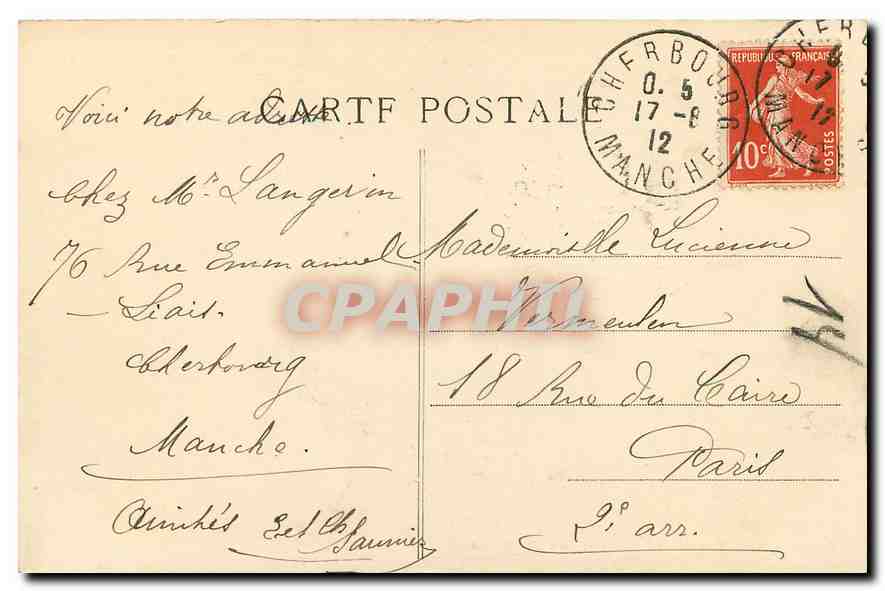 CARTE POSTALE
Voici notre adresse
chez Mr Langevin
76 Rue Emmanuel
Liais.
Cherbourg
Manche.
Amitiés E et Ch Saunier
CHERBOURG
0. 5
17 - 8
12
MANCHE
REPUBLIQUE FRANÇAISE
10c
POSTES
CHERB
17
12
MAN
Mademoiselle Lucienne
Vermeulen
18 Rue du Caire
Paris
2e arr.
CPAPHIL